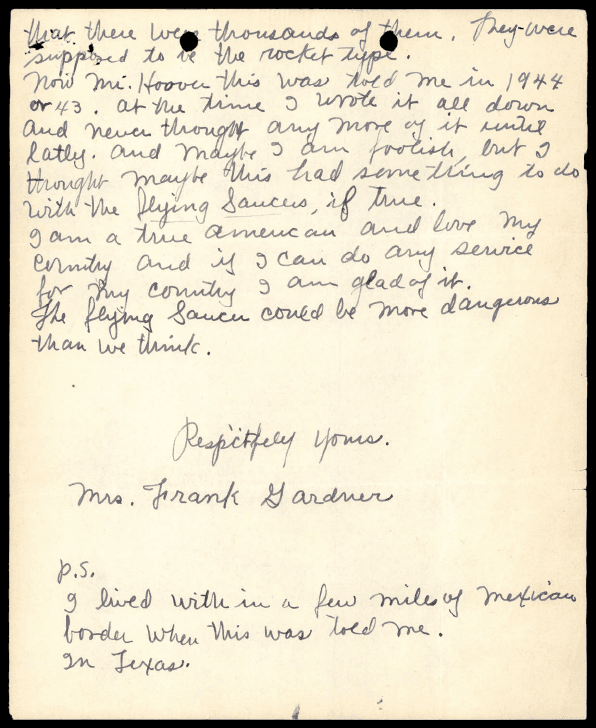 that there were thousands of them. They were
supposed to be the rocket type.
Now Mr. Hoover this was told me in 1944
or 43. at the time I wrote it all down
and never thought any more of it until
latly. and maybe I am foolish, but I
thought maybe this had something to do
with the flying Saucers, if true.
I am a true american and love my
country and if I can do any service
for my country I am glad of it.
The flying Saucer could be more dangerous
than we think.
Respitfely Yours.
Mrs. Frank Gardner
P.S.
I lived with in a few miles of Mexican
border when this was told me.
In Texas.